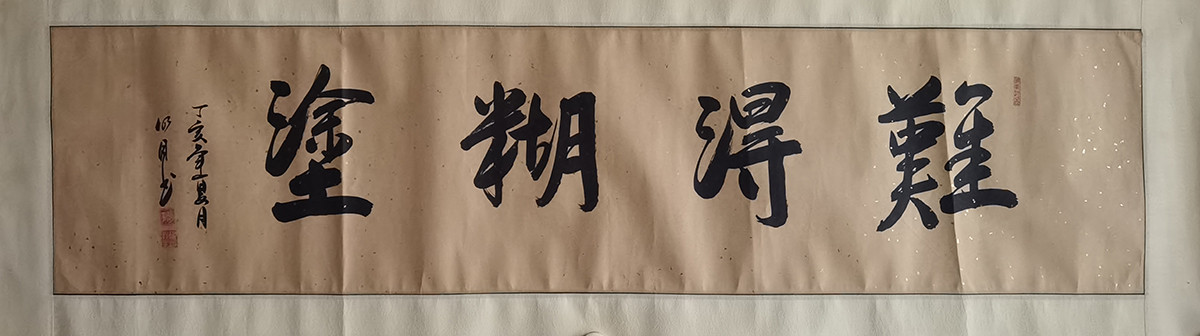 難得糊塗
丁亥年夏月
明月书